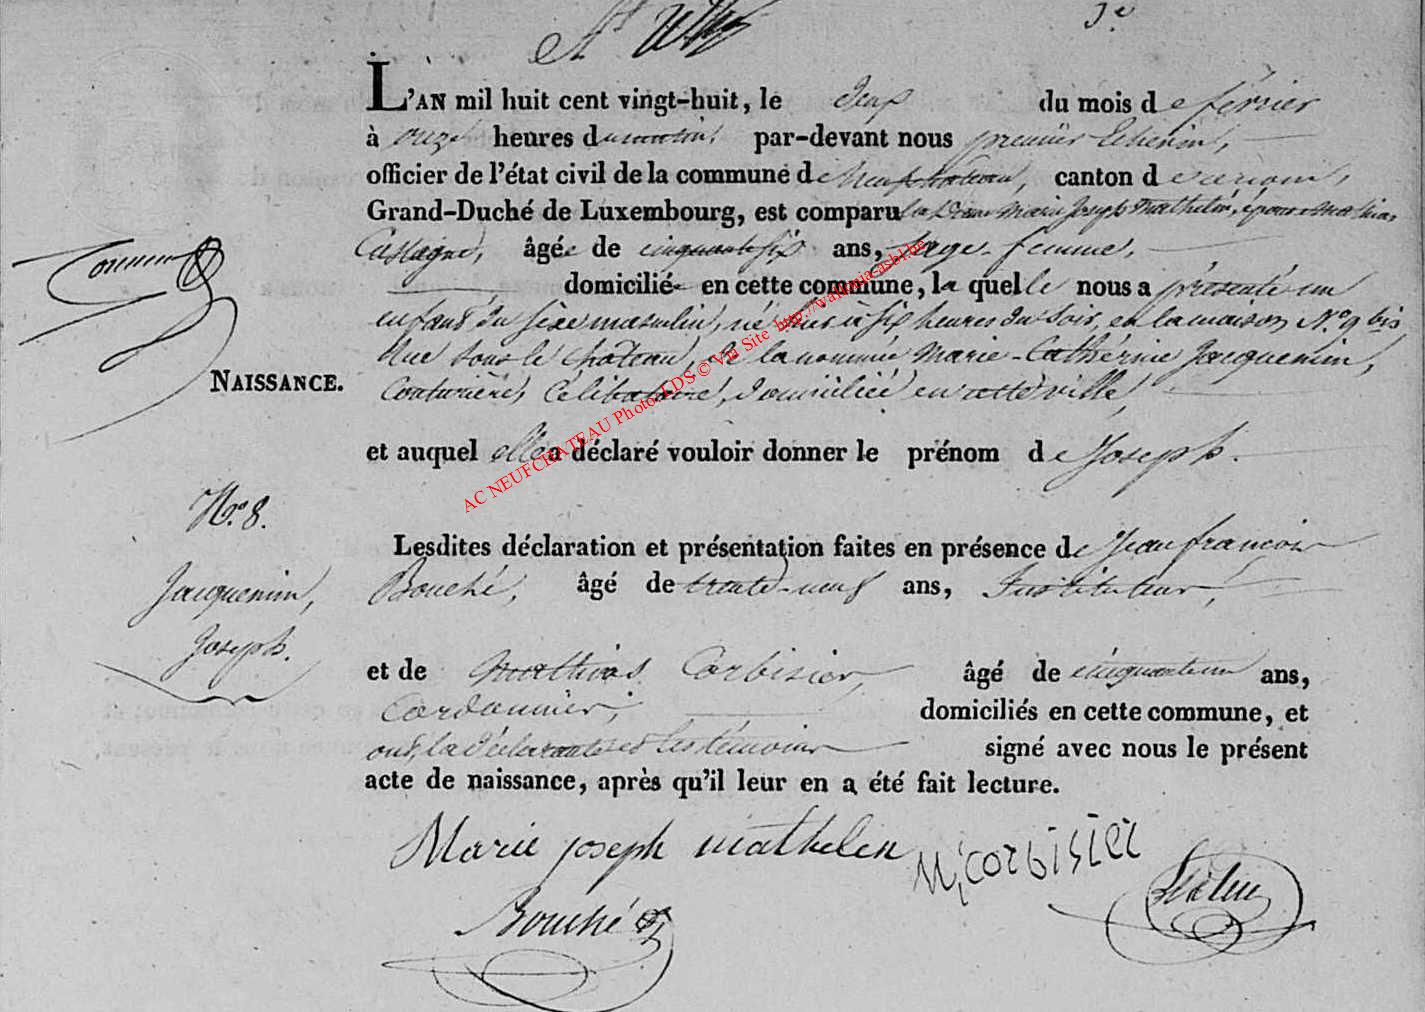 3e
L'AN mil huit cent vingt-huit, le deux du mois de février
à onze heures du matin, par-devant nous premier Echevin,
officier de l'état civil de la commune de Neufchateau, canton de
Grand-Duché de Luxembourg, est comparu la Dame Marie Joseph Mathelin, épouse Mathias
Castagne, âgée de cinquante six ans, sage-femme,
domiciliée en cette commune, la quelle nous a présenté un
enfant du sexe masculin, né hier à six heures du soir, en la maison N.o 9 bis
Rue sous le château, de la nommée Marie-Cathérine Jacquemin,
Couturière, Célibataire, domiciliée en cette ville,
NAISSANCE.
et auquel elle a déclaré vouloir donner le prénom de Joseph.
N.o 8.
Jacquemin,
Joseph.
Lesdites déclaration et présentation faites en présence de Jean françois
Bouché, âgé de trente-neuf ans, Instituteur,
et de Mathias Corbisier, âgé de cinquante un ans,
Cordonnier, domiciliés en cette commune, et
ont, la déclarante et les témoins signé avec nous le présent
acte de naissance, après qu'il leur en a été fait lecture.
Marie joseph mathelin
M, corbisier
Bouché
AC NEUFCHATEAU Photo LDS © Via Site http://wallonia-asbl.be